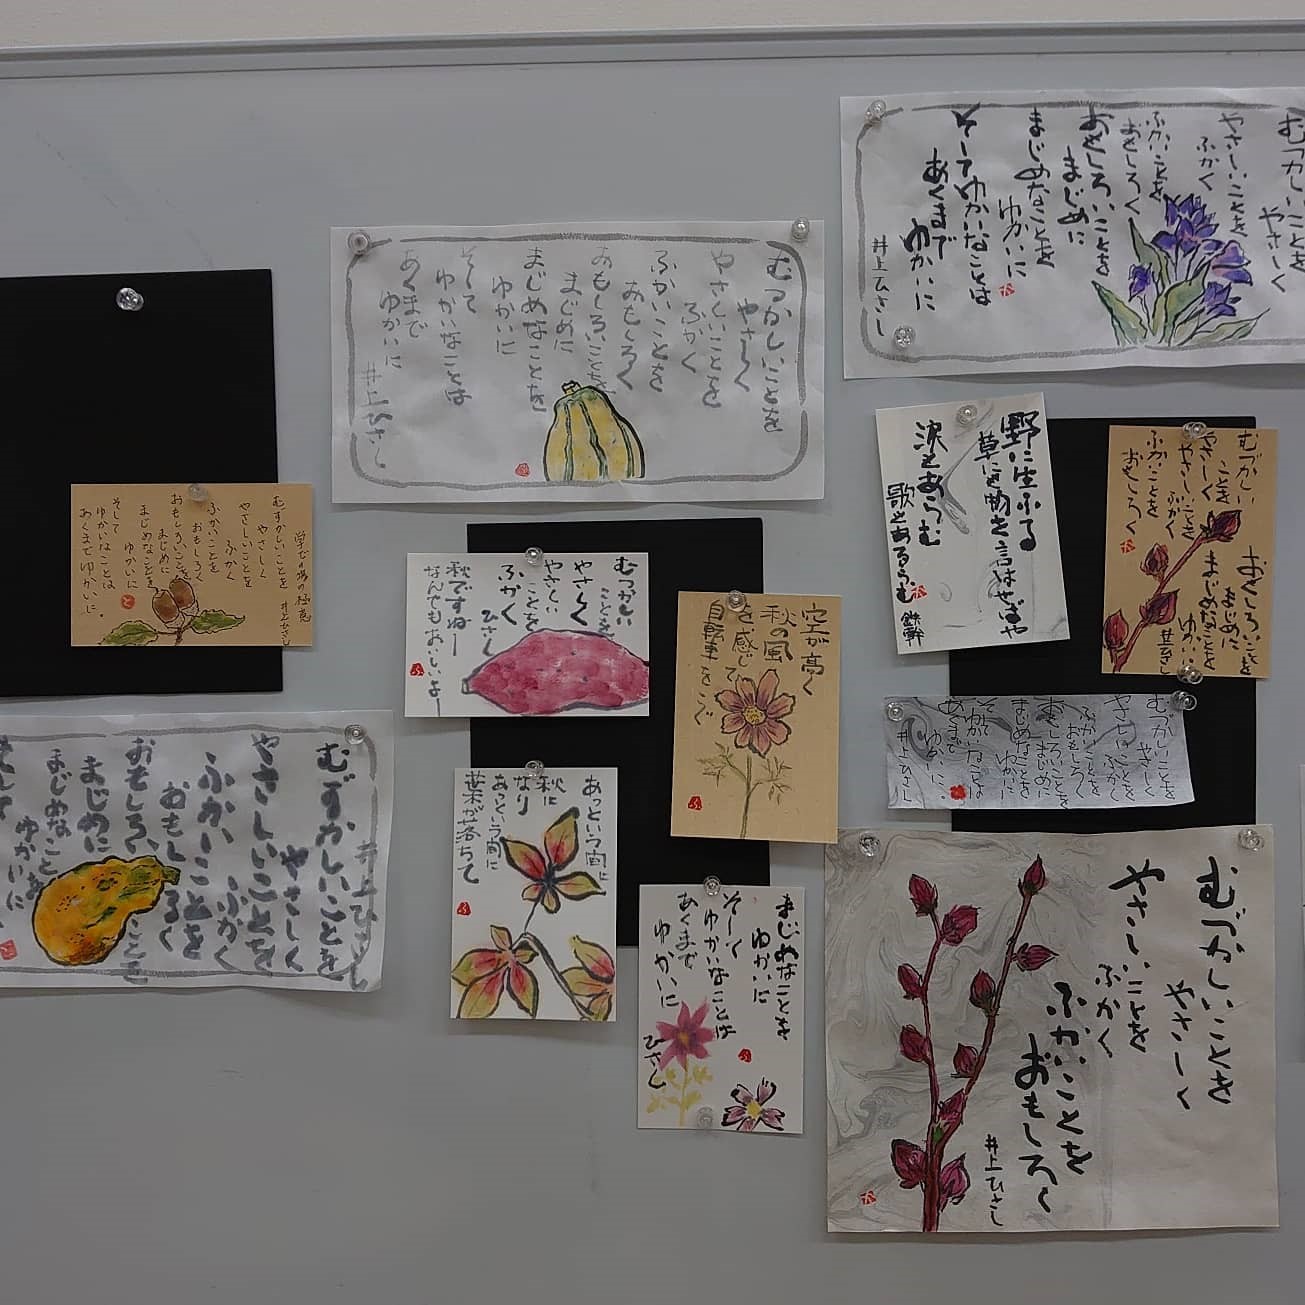 むつかしいことを
やさしく
やさしいことを
ふかく
ふかいことを
おもしろく
おもしろいことを
まじめに
まじめなことを
ゆかいに
そしてゆかいなことは
あくまで
ゆかいに
井上ひさし
むつかしいことを
やさしく
やさしいことを
ふかく
ふかいことを
おもしろく
おもしろいことを
まじめに
まじめなことを
ゆかいに
そして
ゆかいなことは
あくまで
ゆかいに
井上ひさし
むづかしい
ことを
やさしく
やさしいことを
ふかく
ふかいことを
おもしろく
おもしろいことを
まじめに
まじめなことを
ゆかいに
野に生ふる
草にも物を言はせばや
涙もあらむ
歌もあるらむ
鉄幹
井上ひさし
むずかしいことを
やさしく
やさしいことを
ふかく
ふかいことを
おもしろく
おもしろいことを
まじめに
まじめなことを
ゆかいに
そして
ゆかいなことは
あくまでゆかいに。
むつかしい
ことを
やさしく
やさしい
ことを
ふかく
ひさし
秋ですねー
なんでもおいしいよー
空が高く
秋の風
を感じて
自転車をこぐ
むづかしいことを
やさしく
やさしいことを
ふかく
ふかいことを
おもしろく
おもしろいことを
まじめに
まじめなことを
ゆかいに
あくまで
ゆかいに
井上ひさし
井上ひさし
むずかしいことを
やさしく
やさしいことを
ふかく
ふかいことを
おもしろく
おもしろいことを
まじめに
まじめなことを
ゆかいに
あっという間に
秋に
なり
あっという間に
葉が落ちて
まじめなことを
ゆかいに
そして
ゆかいなことは
あくまで
ゆかいに
ひさし
むづかしいことを
やさしく
やさしいことを
ふかく
ふかいことを
おもしろく
井上ひさし